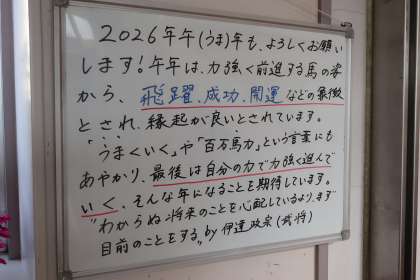 2026年午(うま)年も、よろしくお願い
します!午年は、力強く前進する馬の姿
から、飛躍、成功、開運などの象徴
とされ、縁起が良いとされています。
「うまくいく」や「百万馬力」という言葉にも
あやかり、最後は自分の力で力強く進んで
いく、そんな年になることを期待しています。
"わからぬ将来のことを心配しているより、まず
目前のことをする" by 伊達政宗(武将)